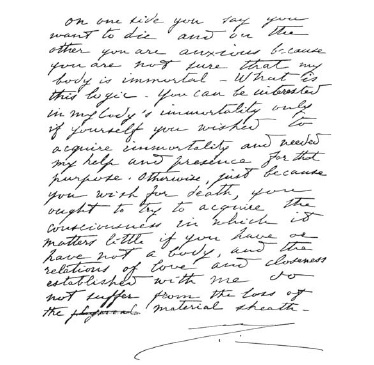 on one side you say you
want to die and on the
other you are anxious because
you are not sure that my
body is immortal – What is
this logic. You can be interested
in my body's immortality only
if yourself you wished to
acquire immortality and needed
my help and presence for that
purpose. Otherwise, just because
you wish for death, you
ought to try to acquire the
consciousness in which it
matters little if you have or
have not a body, and the
relations of love and closeness
established with me do
not suffer from the loss of
the material sheath.